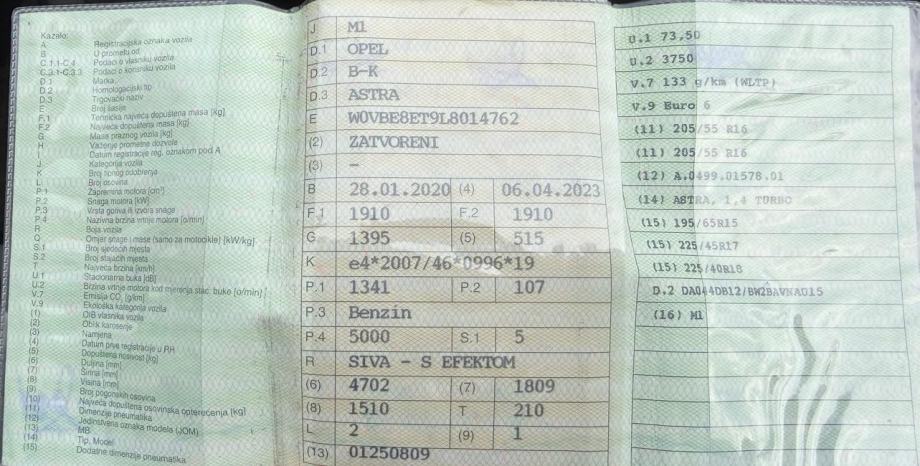 Kazalo:
A Registracijska oznaka vozila
B U prometu od
C.1.1-C.4 Podaci o vlasniku vozila
C.3.1-C.3.3 Podaci o korisniku vozila
D.1 Marka
D.2 Homologacijski tip
D.3 Trgovački naziv
E Broj šasije
F.1 Tehnička najveća dopuštena masa [kg]
F.2 Najveća dopuštena masa [kg]
G Masa praznog vozila [kg]
H Važenje prometne dozvole
I Datum registracije reg. oznakom pod A
J Kategorija vozila
K Broj tipnog odobrenja
L Broj osovina
P.1 Zapremina motora [cm³]
P.2 Snaga motora [kW]
P.3 Vrsta goriva ili izvora snage
P.4 Nazivna brzina vrtnje motora [o/min]
R Boja vozila
Q Omjer snage i mase (samo za motocikle) [kW/kg]
S.1 Broj sjedećih mjesta
S.2 Broj stajaćih mjesta
T Najveća brzina [km/h]
U.1 Stacionarna buka [dB]
U.2 Brzina vrtnje motora kod mjerenja stac. buke [o/min]
V.7 Emisija CO₂ [g/km]
V.9 Ekološka kategorija vozila
(1) OIB vlasnika vozila
(2) Oblik karoserije
(3) Namjena
(4) Datum prve registracije u RH
(5) Dopuštena nosivost [kg]
(6) Duljina [mm]
(7) Širina [mm]
(8) Visina [mm]
(9) Broj pogonskih osovina
(10) Najveća dopuštena osovinska opterećenja [kg]
(11) Dimenzije pneumatika
(12) Jedinstvena oznaka modela (JOM)
(13) MB
(14) Tip, Model
(15) Dodatne dimenzije pneumatika
J M1
D.1 OPEL
D.2 B-K
D.3 ASTRA
E W0VBE8ET9L8014762
(2) ZATVORENI
(3) -
B 28.01.2020 (4) 06.04.2023
F.1 1910 F.2 1910
G 1395 (5) 515
K e4*2007/46*0996*19
P.1 1341 P.2 107
P.3 Benzin
P.4 5000 S.1 5
R SIVA - S EFEKTOM
(6) 4702 (7) 1809
(8) 1510 T 210
L 2 (9) 1
(13) 01250809
U.1 73,50
U.2 3750
V.7 133 g/km (WLTP)
V.9 Euro 6
(11) 205/55 R16
(11) 205/55 R16
(12) A.0499.01578.01
(14) ASTRA, 1,4 TURBO
(15) 195/65R15
(15) 225/45R17
(15) 225/40R18
D.2 DA044DB12/BW2BAVNAD15
(16) M1